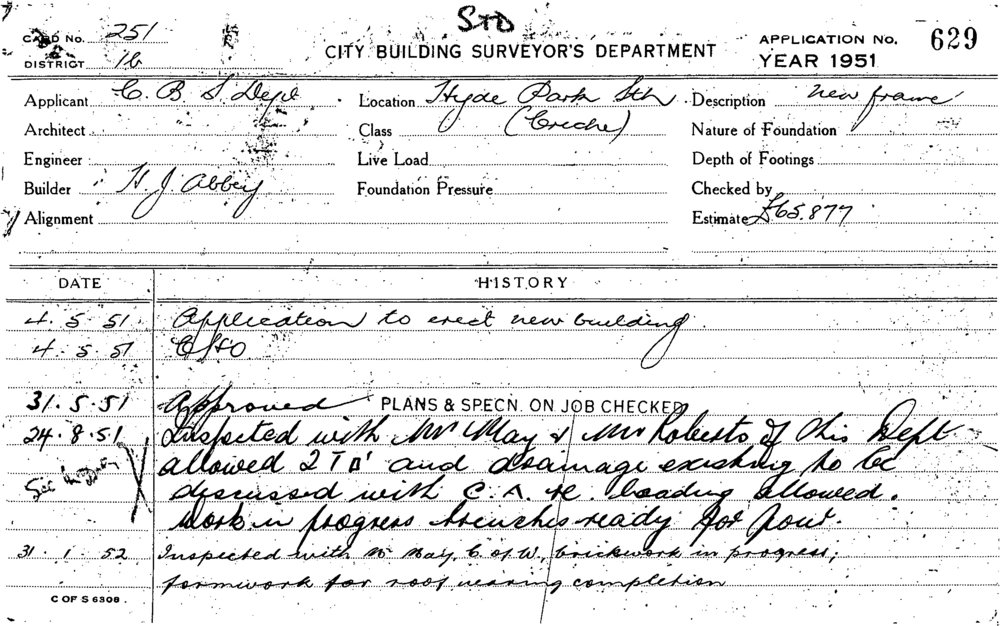 STD
CARD No. 251
CITY BUILDING SURVEYOR'S DEPARTMENT
APPLICATION No. 629
DISTRICT 16
YEAR 1951
Applicant C. B. S. Dept Location Hyde Park Sth Description new frame
Architect Class (Creche) Nature of Foundation
Engineer Live Load Depth of Footings
Builder H. J. Abbey Foundation Pressure Checked by
Alignment Estimate £65.877
DATE HISTORY
4. 5. 51 Application to erect new building.
4. 5. 51 CHO
31. 5. 51 Approved PLANS & SPECN. ON JOB CHECKED
24. 8. 51 Inspected with Mr May & Mr Roberts of this Dept
allowed 2 T and drainage existing to be
See
discussed with C. A. re. loading allowed.
Work in progress trenches ready for pour.
31. 1. 52 Inspected with Mr May, C. of W., brickwork in progress;
formwork for roof nearing completion
C OF S 6308